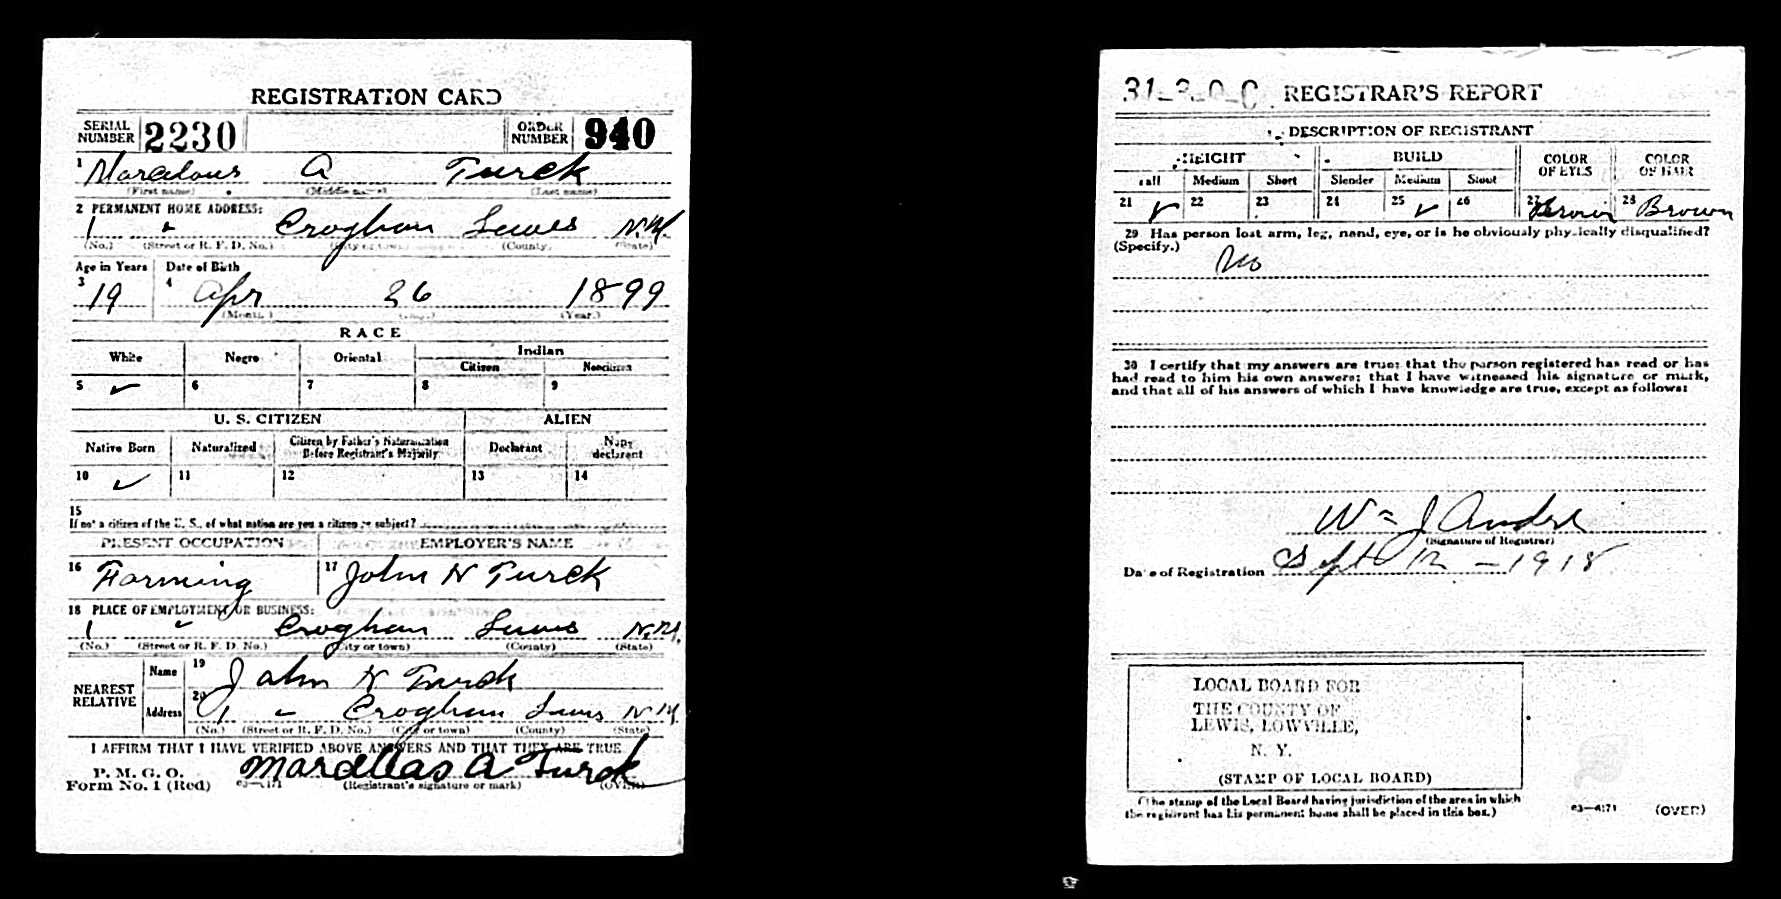 REGISTRATION CARD
SERIAL NUMBER 2230 ORDER NUMBER 940
1 Marcelous A Turck
(First name) (Middle name) (Last name)
2 PERMANENT HOME ADDRESS:
1 " Croghan Lewis N.Y.
(No.) (Street or R. F. D. No.) (City or town) (County) (State)
Age in Years Date of Birth
3 19 4 Apr 26 1899
(Month.) (Day.) (Year.)
RACE
White Negro Oriental Indian
Citizen Noncitizen
5 ✓ 6 7 8 9
U. S. CITIZEN ALIEN
Native Born Naturalized Citizen by Father's Naturalization Before Registrant's Majority Declarant Non-declarant
10 ✓ 11 12 13 14
15
If not a citizen of the U. S., of what nation are you a citizen or subject?
PRESENT OCCUPATION EMPLOYER'S NAME
16 Farming 17 John H Turck
18 PLACE OF EMPLOYMENT OR BUSINESS:
1 " Croghan Lewis N.Y.
(No.) (Street or R. F. D. No.) (City or town) (County) (State)
NEAREST RELATIVE
Name 19 John H Turck
Address 20 1 " Croghan Lewis N.Y.
(No.) (Street or R. F. D. No.) (City or town) (County) (State)
I AFFIRM THAT I HAVE VERIFIED ABOVE ANSWERS AND THAT THEY ARE TRUE
P. M. G. O.
Form No. 1 (Red) 03—6171 Marcellas A Turck
(Registrant's signature or mark) (OVER)
31-3-0-C REGISTRAR'S REPORT
DESCRIPTION OF REGISTRANT
HEIGHT BUILD COLOR OF EYES COLOR OF HAIR
Tall Medium Short Slender Medium Stout
21 ✓ 22 23 24 25 ✓ 26 27 Brown 28 Brown
29 Has person lost arm, leg, hand, eye, or is he obviously physically disqualified?
(Specify.) No
30 I certify that my answers are true; that the person registered has read or has
had read to him his own answers; that I have witnessed his signature or mark,
and that all of his answers of which I have knowledge are true, except as follows:
Wm J Andre
(Signature of Registrar)
Date of Registration Sept 12 - 1918
LOCAL BOARD FOR
THE COUNTY OF
LEWIS, LOWVILLE,
N. Y.
(STAMP OF LOCAL BOARD)
(The stamp of the Local Board having jurisdiction of the area in which
the registrant has his permanent home shall be placed in this box.)
03—6171 (OVER)